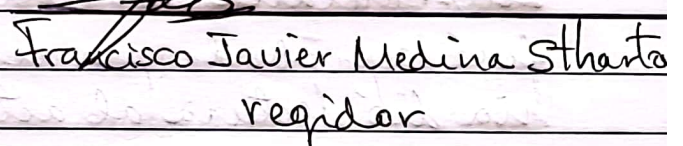 Francisco Javier Medina Sthanta
regidor